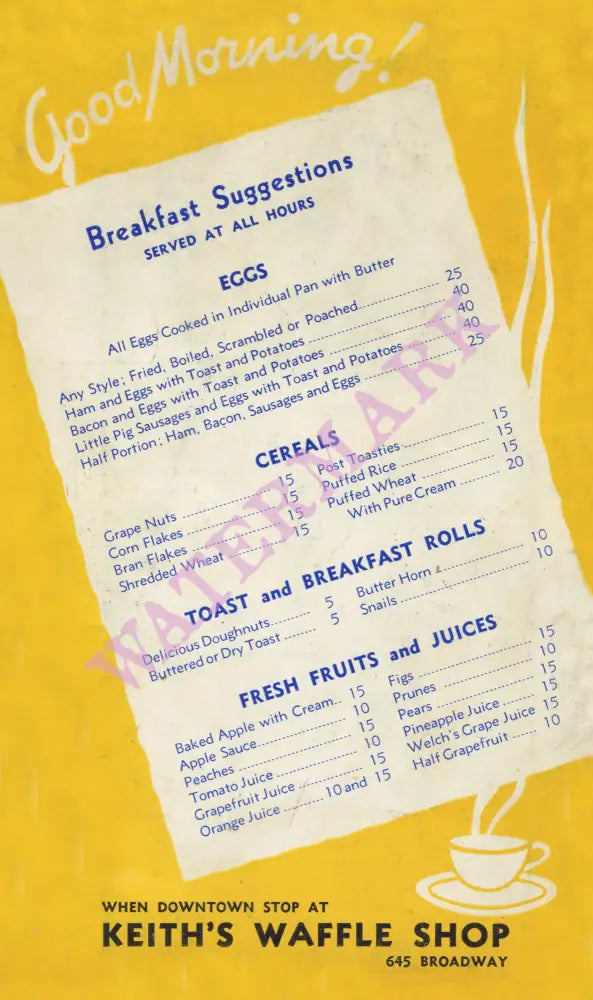 Good Morning!
Breakfast Suggestions
SERVED AT ALL HOURS
EGGS
All Eggs Cooked in Individual Pan with Butter
Any Style; Fried, Boiled, Scrambled or Poached 25
Ham and Eggs with Toast and Potatoes 40
Bacon and Eggs with Toast and Potatoes 40
Little Pig Sausages and Eggs with Toast and Potatoes 40
Half Portion; Ham, Bacon, Sausages and Eggs 25
CEREALS
Grape Nuts 15
Corn Flakes 15
Bran Flakes 15
Shredded Wheat 15
Post Toasties 15
Puffed Rice 15
Puffed Wheat 15
With Pure Cream 20
TOAST and BREAKFAST ROLLS
Delicious Doughnuts 5
Buttered or Dry Toast 5
Butter Horn 10
Snails 10
FRESH FRUITS and JUICES
Baked Apple with Cream 15
Apple Sauce 10
Peaches 15
Tomato Juice 10
Grapefruit Juice 15
Orange Juice 10 and 15
Figs 15
Prunes 10
Pears 15
Pineapple Juice 15
Welch's Grape Juice 15
Half Grapefruit 10
WATERMARK
WHEN DOWNTOWN STOP AT
KEITH'S WAFFLE SHOP
645 BROADWAY